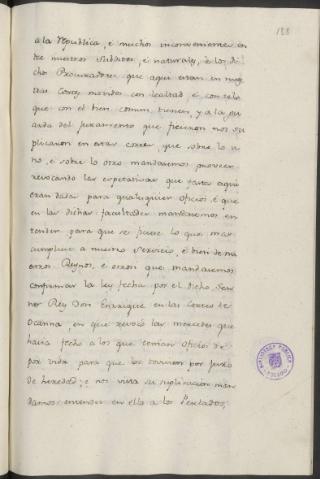 188
a la Republica, é muchos inconvenientes en
tre nuestros Subditos, é naturales, é los di
chos Procuradores que aqui estan en nues
tras Cortes movidos con lealtad, é con zelo
que con el bien comun tienen, y a la gu
arda del juramento que ficieron nos su
plicaron en estas cortes, que sobre lo u
no, é sobre lo otro mandasemos proveer
revocando las espectativas que fasta aqui
eran dadas para qualesquier oficios, é que
en las dichas facultades mandasemos en
tender para que se ficiese lo que mas
cumpliese a nuestro servicio, é bien de nu
estros Reynos, é otrosi que mandasemos
confirmar la ley fecha por el dicho Se
ñor Rey Don Enrrique en las Cortes de
Ocanna en que revocó las mercedes que
havia fecho a los que tenian oficios de
por vida para que los toviesen por juro
de heredad; é nos vista su suplicacion man
damos entender en ella a los Perlados,
BIBLIOTECA PUBLICA
TOLEDO